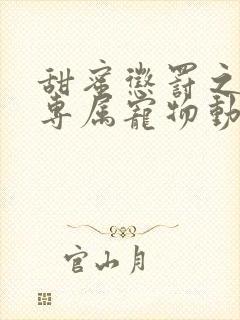 甜蜜懲罰之
專屬寵物動
官山月